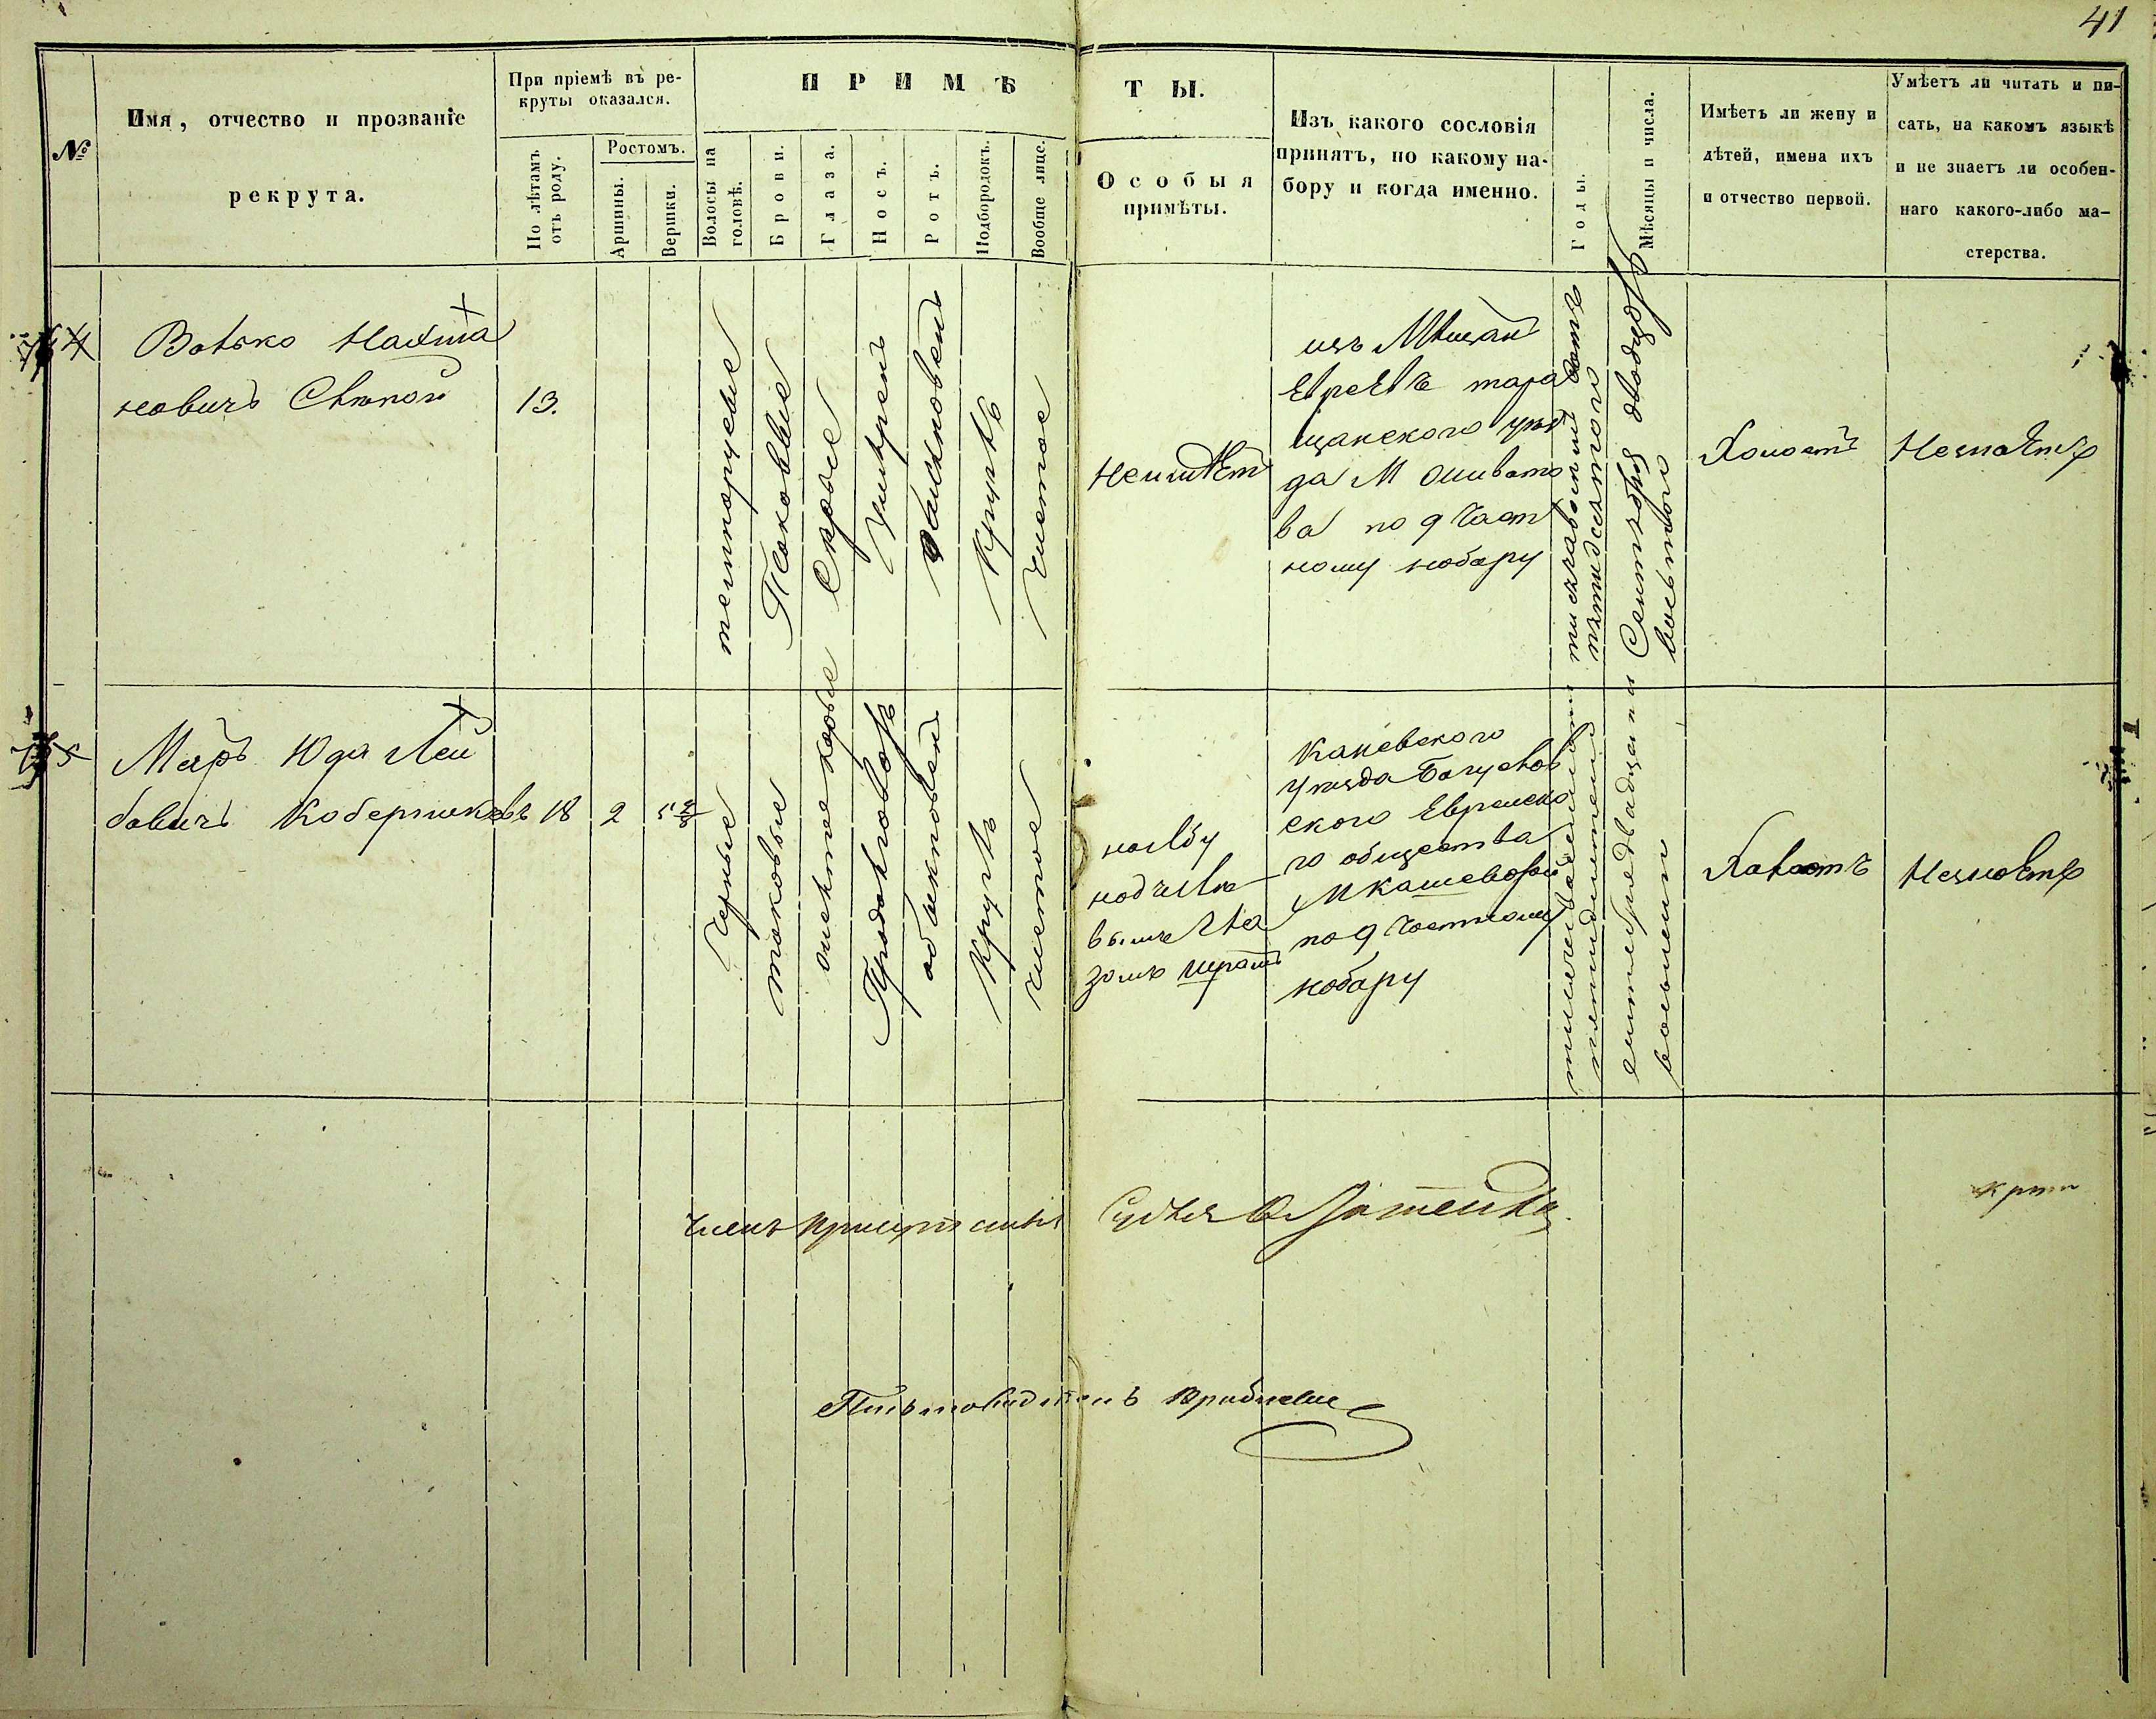 41
№
Имя, отчество и прозваніе
рекрута.
При пріемѣ въ ре-
круты оказался.
По лѣтамъ
отъ роду.
Ростомъ.
Аршины.
Вершки.
ПРИМѢ
ТЫ.
Волосы на
головѣ.
Брови.
Глаза.
Носъ.
Ротъ.
Подбородокъ.
Вообще лице.
Особыя
примѣты.
Изъ какого сословія
принятъ, по какому на-
бору и когда именно.
Годы.
Мѣсяцы и числа.
Имѣетъ ли жену и
дѣтей, имена ихъ
и отчество первой.
Умѣетъ ли читать и пи-
сать, на какомъ языкѣ
и не знаетъ ли особен-
наго какого-либо ма-
стерства.
4
Волько Нахма
новичъ Слепой
13.
темнорусые
Таковые
Серые
Умѣренъ
Обыкновенъ
Круглъ
Чистое
Неимѣет
изъ Мѣщан
Евреевъ тара
щанского уѣз
да М
ва по 9 Част
ному набору
тысяча восемь сотъ
пятдесятого
Сентября двадцать
восьмого
Холостъ
Незнаетъ
5
Меръ Юда Лей
бовичъ
18
2
5
Черные
таковые
карые
Продолговатъ
обыкновен
Круглъ
чистое
налбу
надчелѣ
выше
зомъ шрамъ
Каневского
уѣзда Богуслав
ского Еврейско
го общества
М
по 9 Частному
набору
тысяча восемсот
сентября двадцати
восьмого
Холостъ
Незнаетъ
Членъ
Судья